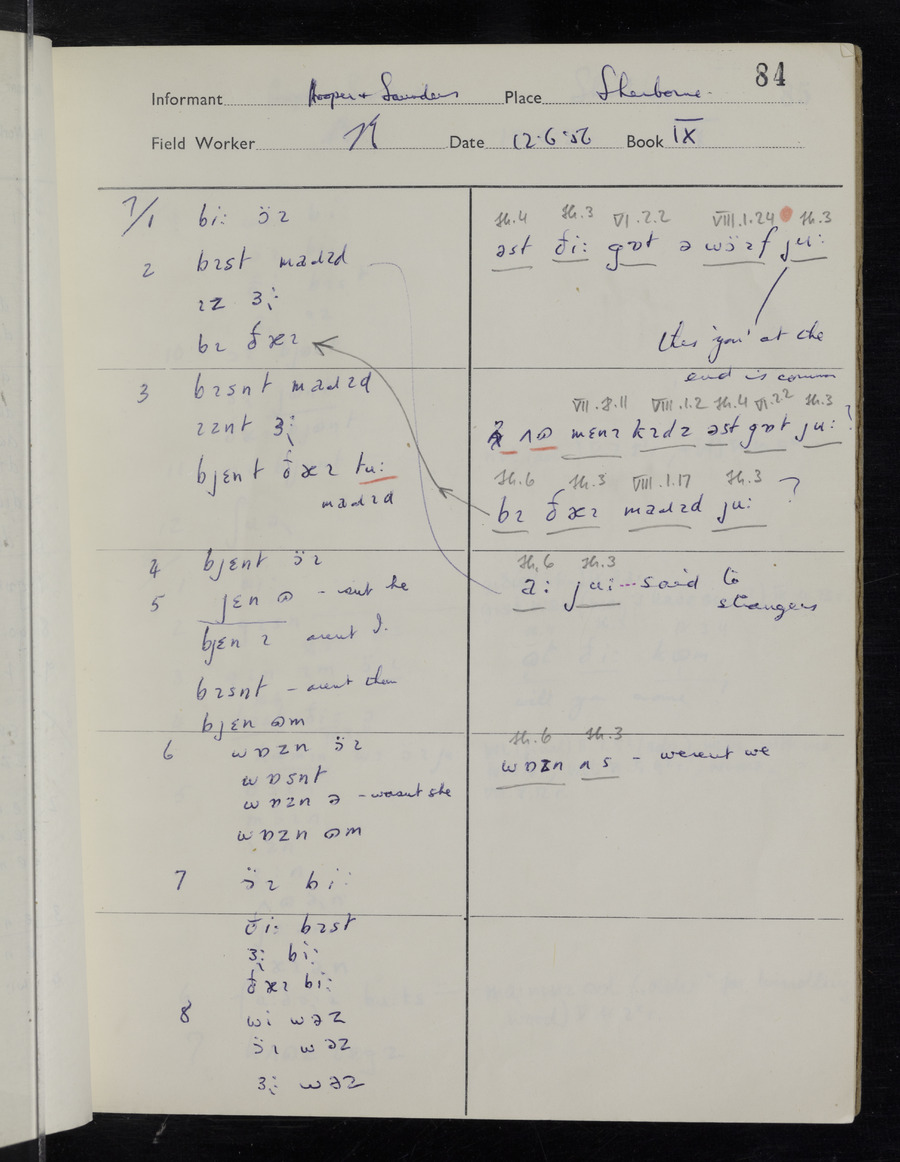 84
Informant Hooper + Saunders Place Sherborne.
Field Worker Date 12·6·56 Book IX
7/1 biː öɪ
2 bɪst maɹɪd
ɪz ɜː
bɪ ðæɪ
3 bɪsnt maɹɪd
ɪznt ɜː
bjɛnt ðæɪ tuː
maɹɪd
4 bjɛnt öɪ
5 jɛn ɷ - aint he
bjɛn ɪ arent I.
bɪsnt - arent thou
bjɛn ɷm
6 wɒzn öɪ
wɒsnt
wɒzn ə - wasnt she
wɒzn ɷm
7 öɪ biː
ðiː bɪst
ɜː biː
ðæɪ biː
8 wi wəz
öɪ wəz
ɜː wəz
th.4 th.3 VI.2.2 VIII.1.24 th.3
əst ðiː gɒt ə wöɪf juː
this 'you' at the
end is common
VII.8.11 VIII.1.2 th.4 VI.2.2 th.3
ʌɷ mɛnɪ kɪdz əst gɒt juː?
th.6 th.3 VIII.1.17 th.3
bɪ ðæɪ maɹɪd juː ?
th.6 th.3
aː juː --- said to
strangers
th.6 th.3
wɒzn ʌs - werent we